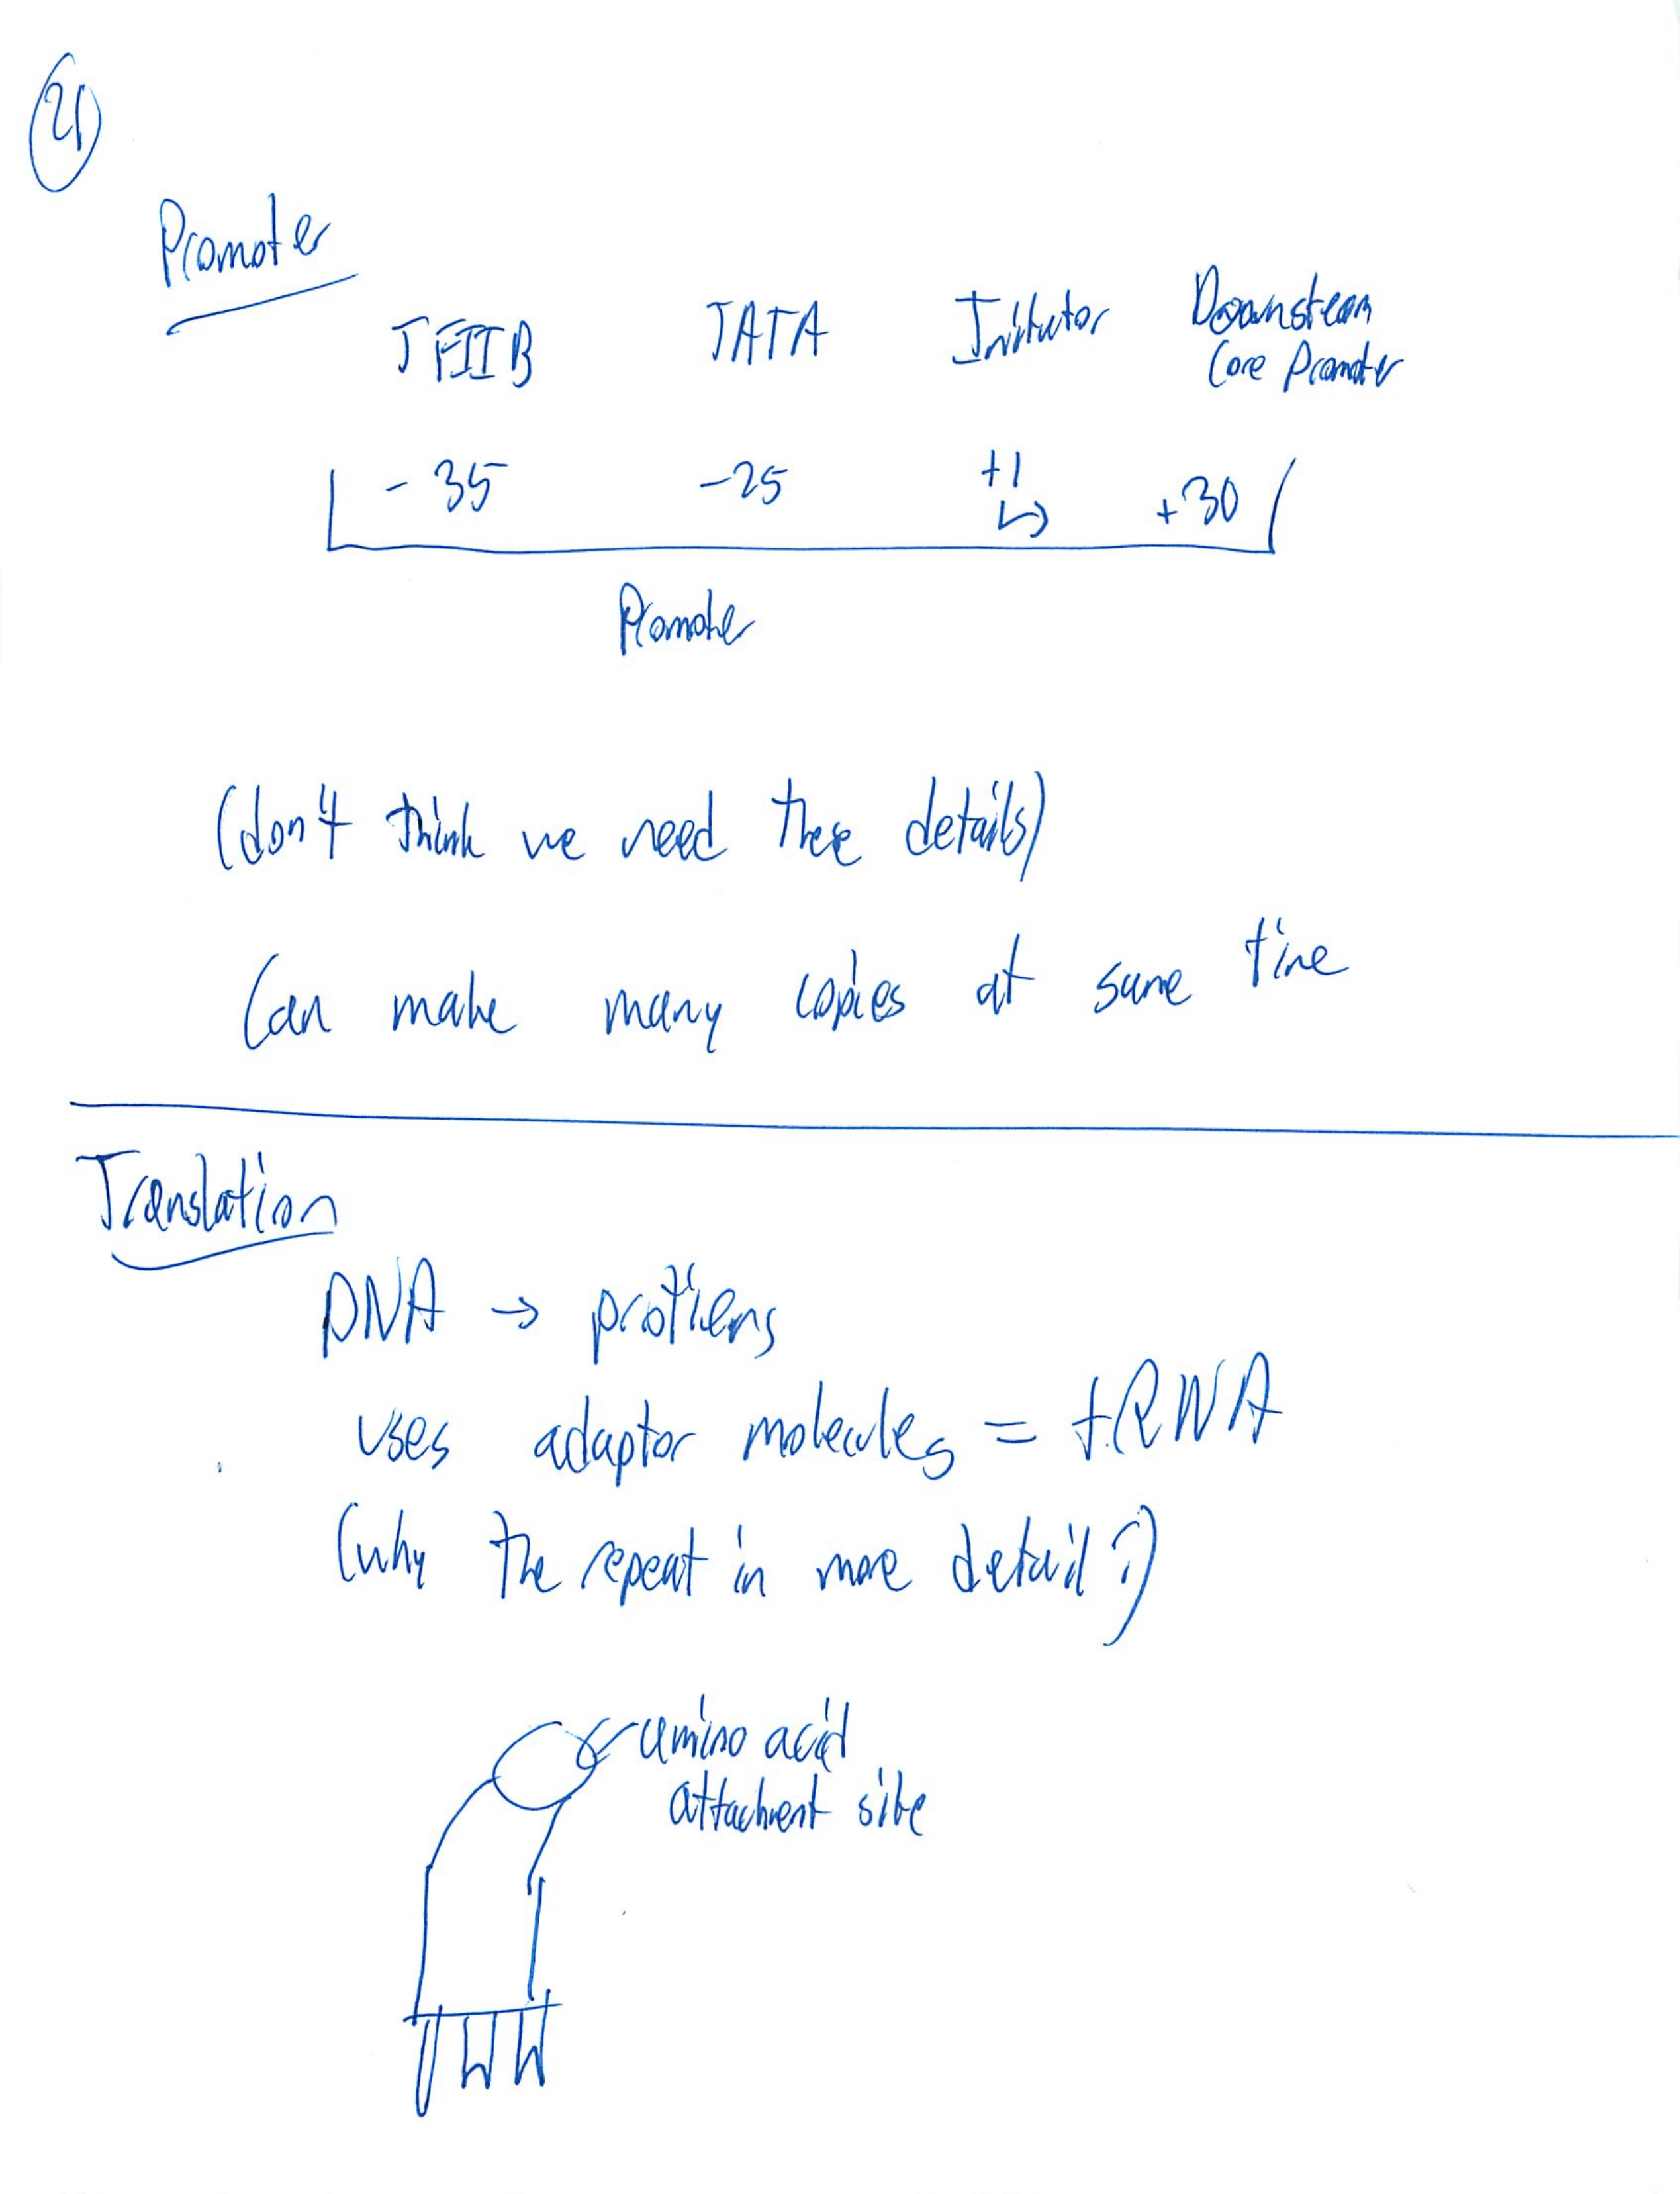 21
Promoter
TFIIB TATA Initiator Downstream
Core Promoter
- 35 -25 +1 +30
Promoter
(don't think we need these details)
Can make many copies at same time
Translation
DNA → protiens
uses adaptor molecules = tRNA
(why the repeat in more detail?)
amino acid
attachment site